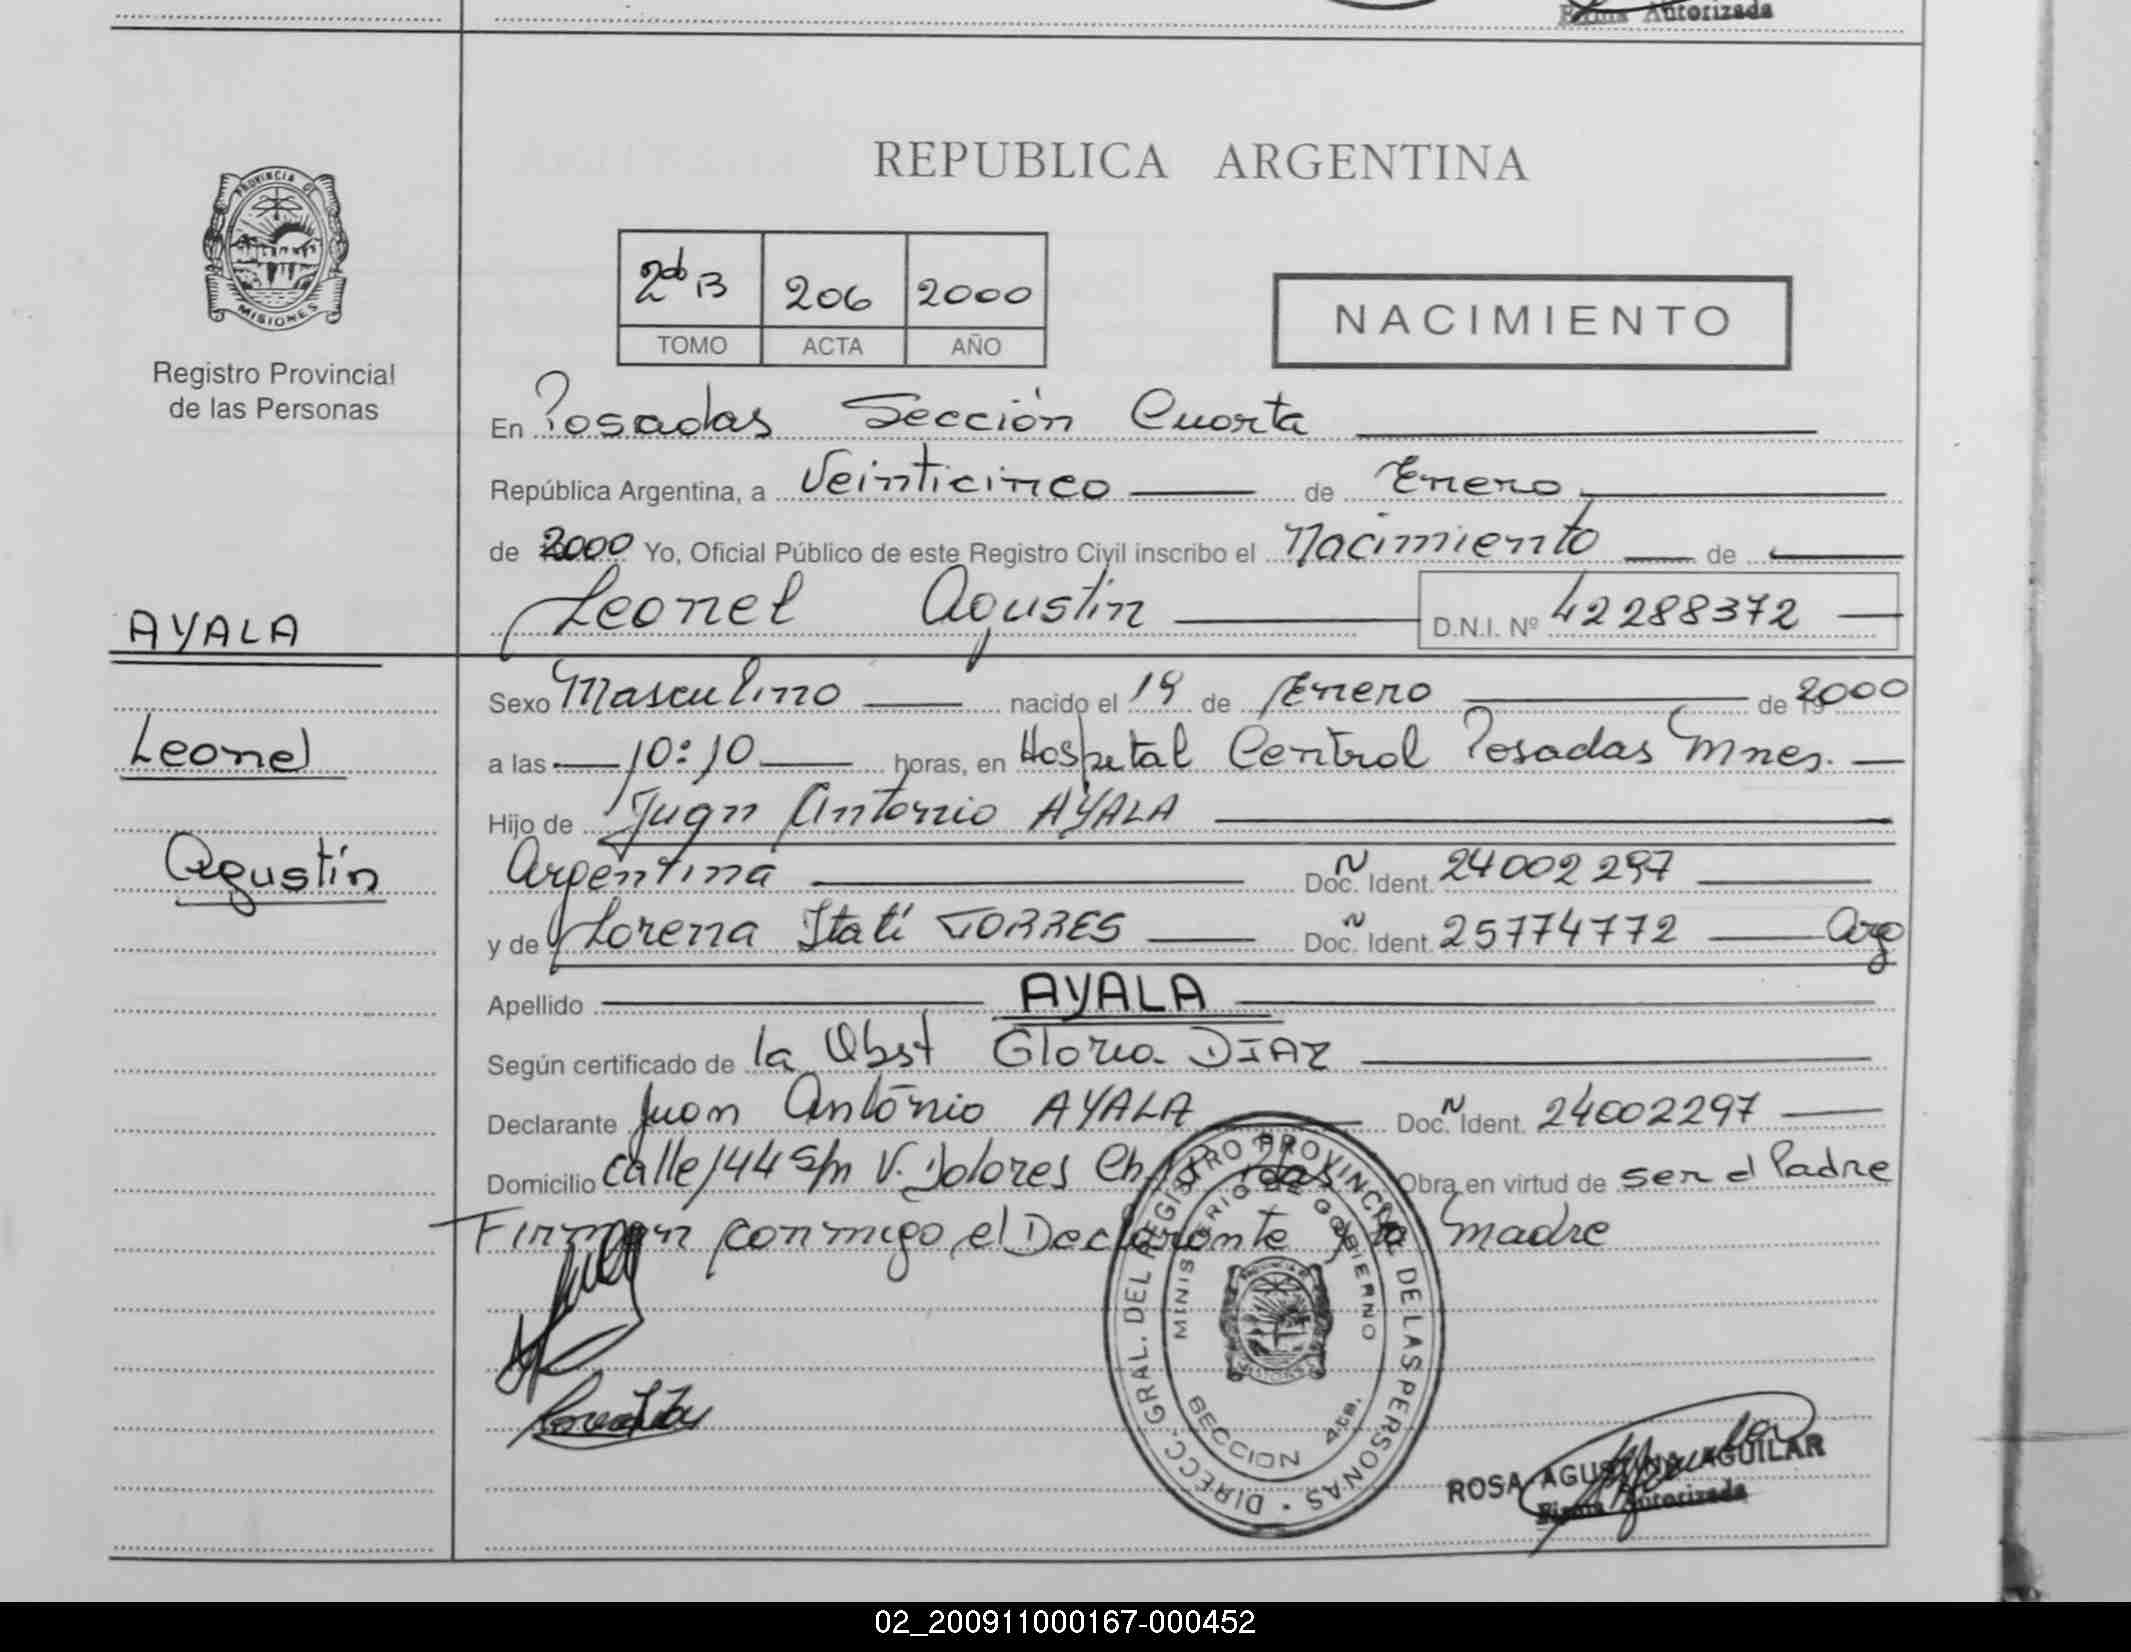 Firma Autorizada
PROVINCIA DE
MISIONES
Registro Provincial
de las Personas
AYALA
Leonel
Agustín
REPUBLICA ARGENTINA
2do B 206 2000
TOMO ACTA AÑO
NACIMIENTO
En Posadas Sección Cuarta
República Argentina, a Veinticinco de Enero
de 2000 Yo, Oficial Público de este Registro Civil inscribo el Nacimiento de
Leonel Agustín D.N.I. Nº 42288372
Sexo Masculino nacido el 19 de Enero de 2000
a las 10:10 horas, en Hospital Central Posadas Mnes.
Hijo de Juan Antonio AYALA
Argentina Doc. Ident. 24002297
y de Lorena Itatí TORRES Doc. Ident. 25774772 Arg
Apellido AYALA
Según certificado de la Obst Gloria DIAZ
Declarante Juan Antonio AYALA Doc. Ident. 24002297
Domicilio calle 144 s/n V. Dolores Obra en virtud de ser el Padre
Firman conmigo el Declarante y la madre
DIRECC. GRAL. DEL REGISTRO PROVINCIAL DE LAS PERSONAS
MINISTERIO DE GOBIERNO
SECCION 4ta.
ROSA AGUSTINA AGUILAR
Firma Autorizada
02_200911000167-000452